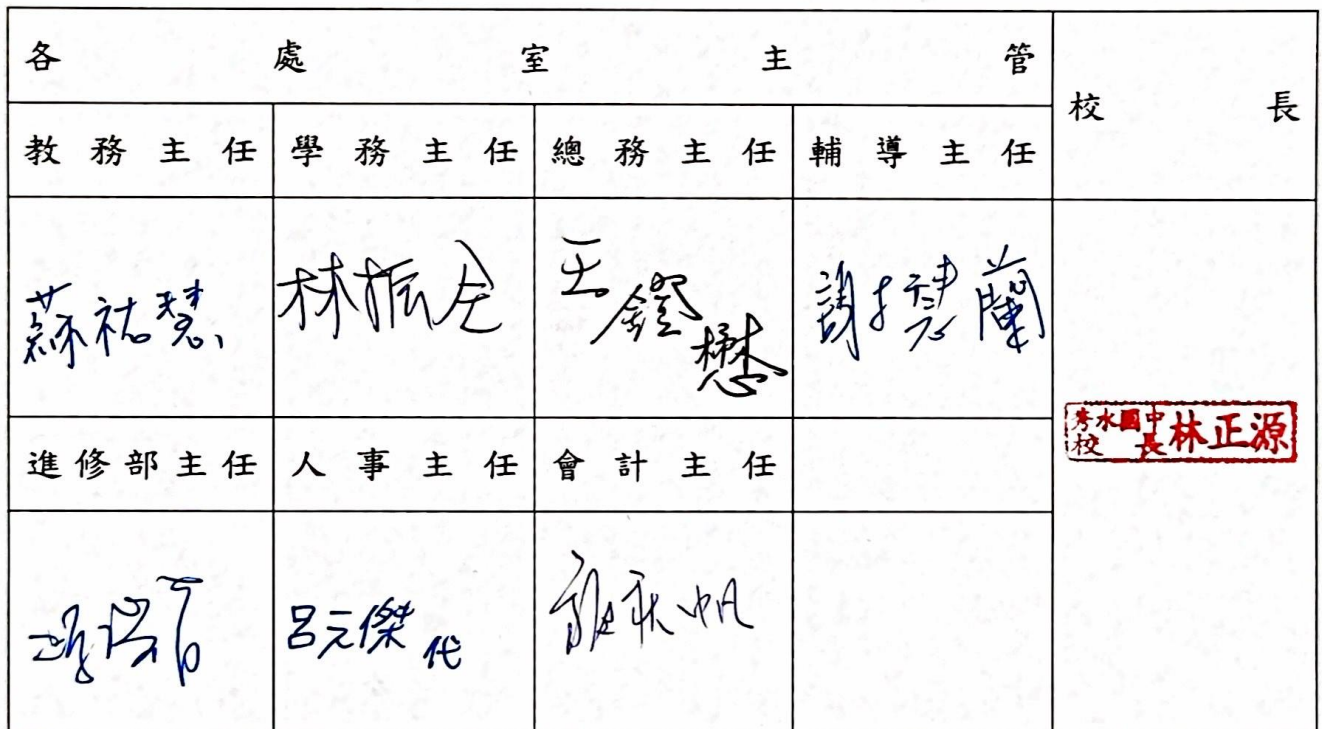 各處室主管
校長
教務主任 學務主任 總務主任 輔導主任
蘇祐慧 林振全 王鐙懋 謝 蘭
秀水國中校長林正源
進修部主任 人事主任 會計主任
呂元傑代